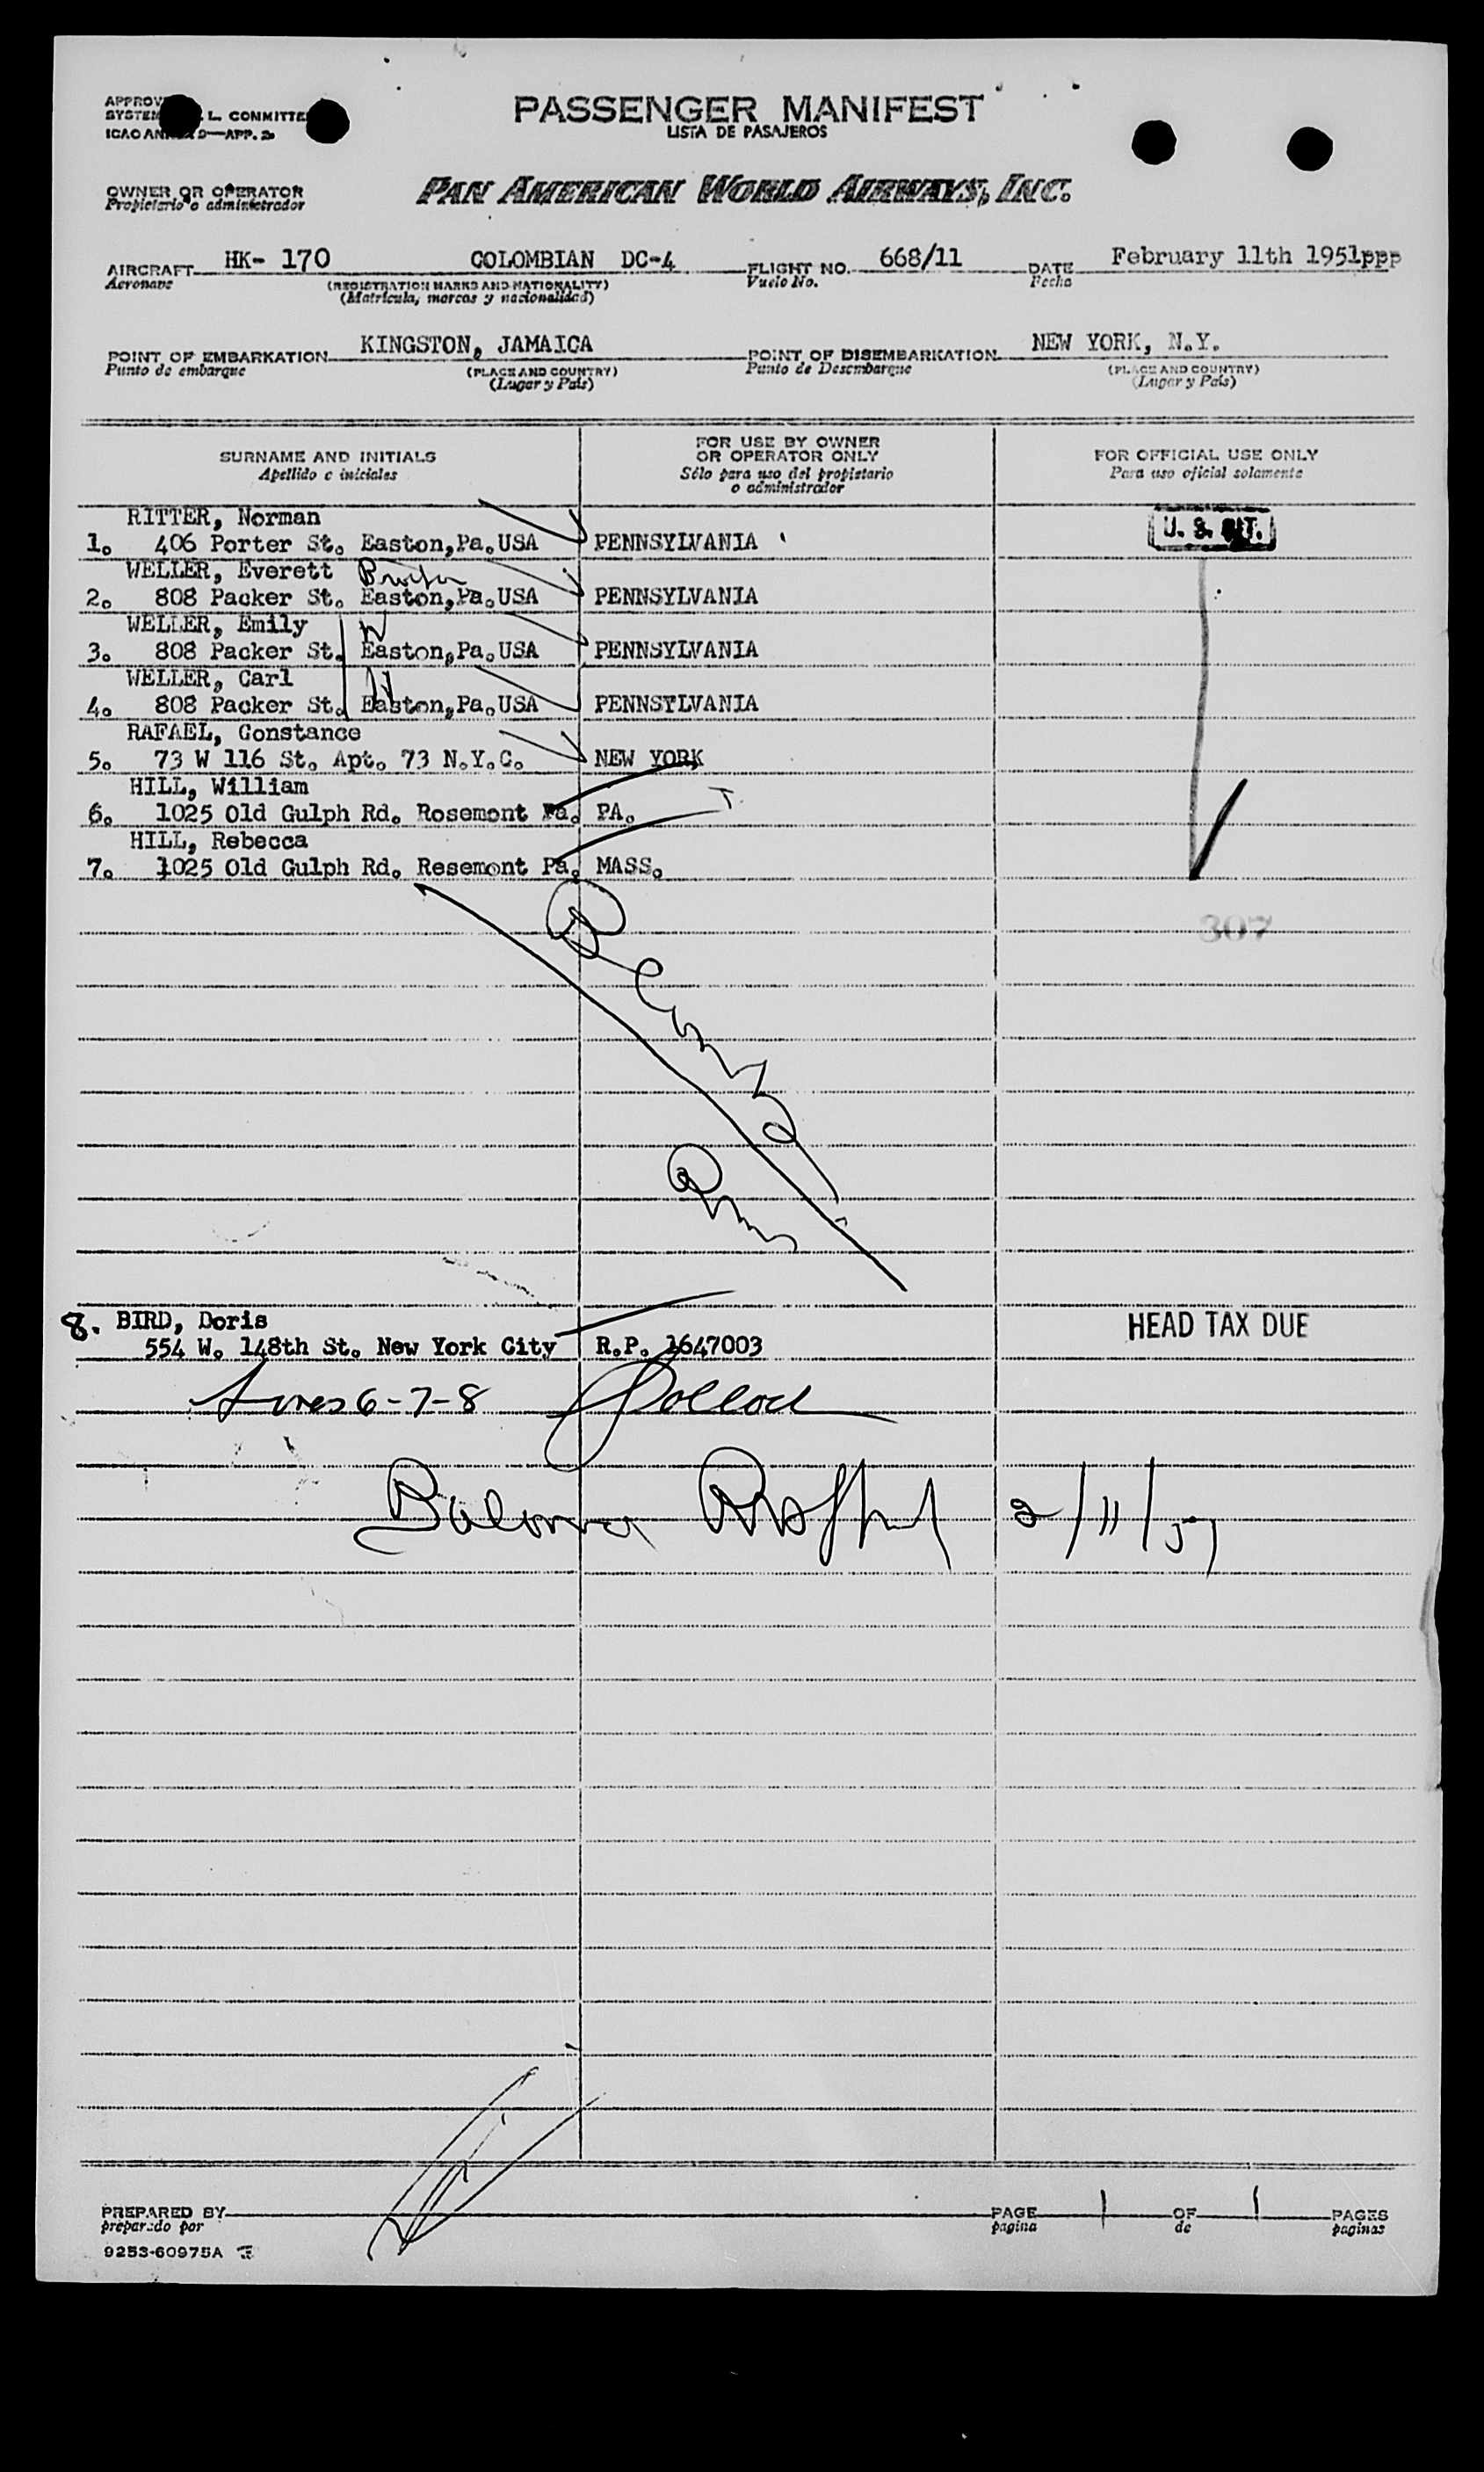 PASSENGER MANIFEST
LISTA DE PASAJEROS
L. COMMITTE
ICAO
APP. 2
OWNER OR OPERATOR
Propietario o administrador
PAN AMERICAN WORLD AIRWAYS, INC.
AIRCRAFT HK- 170 COLOMBIAN DC-4 FLIGHT NO. 668/11 DATE February 11th 1951ppp
Aeronave (REGISTRATION MARKS AND NATIONALITY) Vuelo No. Fecha
(Matrícula, marcas y nacionalidad)
POINT OF EMBARKATION KINGSTON, JAMAICA POINT OF DISEMBARKATION NEW YORK, N.Y.
Punto de embarque (PLACE AND COUNTRY) Punto de Desembarque (PLACE AND COUNTRY)
(Lugar y País) (Lugar y País)
SURNAME AND INITIALS
Apellido e iniciales
FOR USE BY OWNER
OR OPERATOR ONLY
Sólo para uso del propietario
o administrador
FOR OFFICIAL USE ONLY
Para uso oficial solamente
RITTER, Norman
1. 406 Porter St. Easton,Pa.USA PENNSYLVANIA
WELLER, Everett
2. 808 Packer St. Easton,Pa.USA PENNSYLVANIA
WELLER, Emily
3. 808 Packer St. Easton,Pa.USA PENNSYLVANIA
WELLER, Carl
4. 808 Packer St. Easton,Pa.USA PENNSYLVANIA
RAFAEL, Constance
5. 73 W 116 St. Apt. 73 N.Y.C. NEW YORK
HILL, William
6. 1025 Old Gulph Rd. Rosemont Pa. PA.
HILL, Rebecca
7. 1025 Old Gulph Rd. Resemont Pa. MASS.
307
8. BIRD, Doris
554 W. 148th St. New York City R.P. 1647003
HEAD TAX DUE
6-7-8
2/11/51
PREPARED BY PAGE 1 OF 1 PAGES
preparado por pagina de paginas
9253-60975A